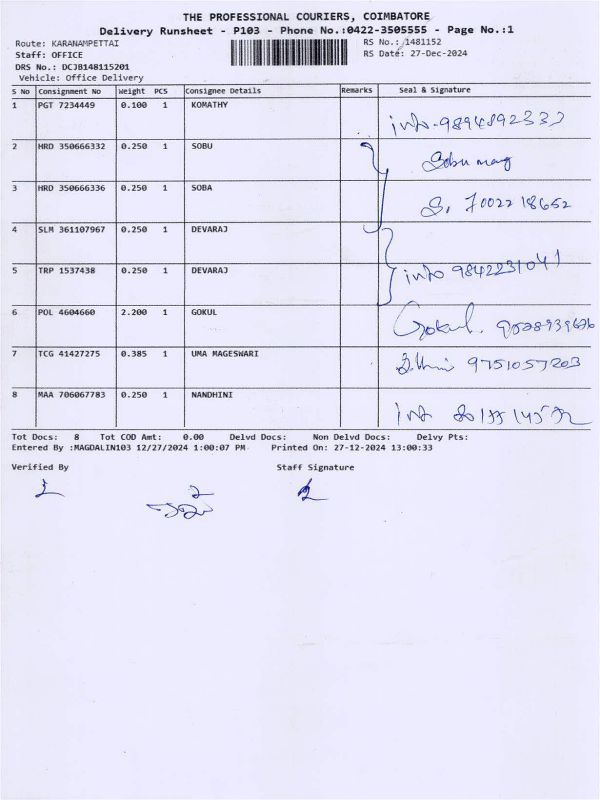 THE PROFESSIONAL COURIERS, COIMBATORE
Delivery Runsheet - P103 - Phone No.:0422-3505555 - Page No.:1
Route: KARANAMPETTAI RS No.: 1481152
Staff: OFFICE RS Date: 27-Dec-2024
DRS No.: DCJB148115201
Vehicle: Office Delivery
S No Consignment No Weight PCS Consignee Details Remarks Seal & Signature
1 PGT 7234449 0.100 1 KOMATHY
2 HRD 350666332 0.250 1 SOBU
3 HRD 350666336 0.250 1 SOBA S. 7002218652
4 SLM 361107967 0.250 1 DEVARAJ
5 TRP 1537438 0.250 1 DEVARAJ info 9842231041
6 POL 4604660 2.200 1 GOKUL Gokul.
7 TCG 41427275 0.385 1 UMA MAGESWARI 9751057203
8 MAA 706067783 0.250 1 NANDHINI
Tot Docs: 8 Tot COD Amt: 0.00 Delvd Docs: Non Delvd Docs: Delvy Pts:
Entered By :MAGDALIN103 12/27/2024 1:00:07 PM Printed On: 27-12-2024 13:00:33
Verified By Staff Signature